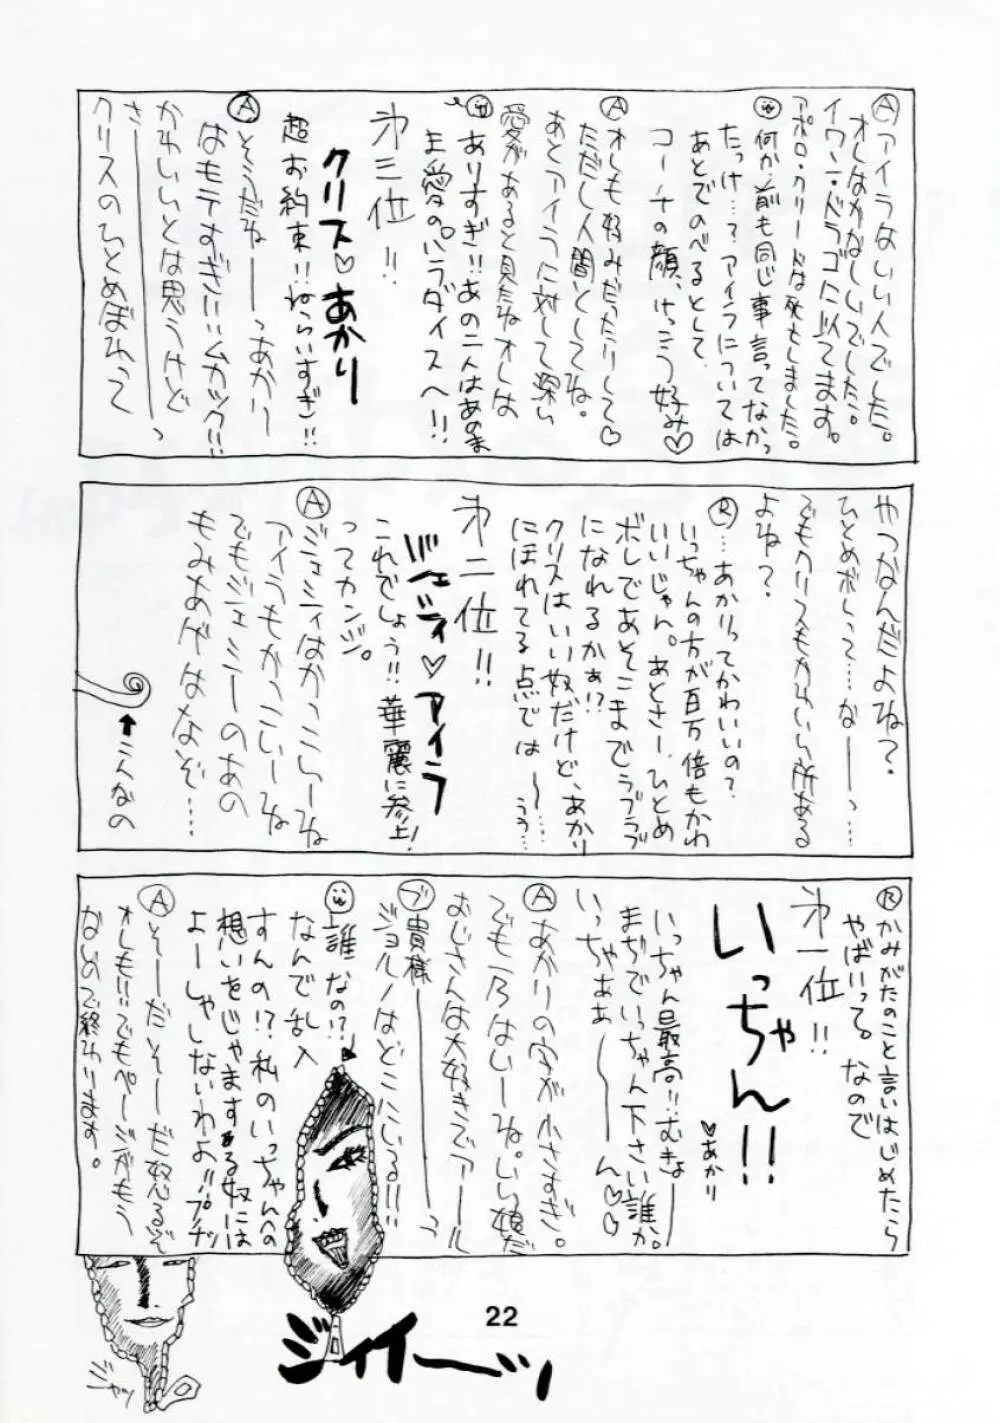 Ⓐアイラはいい人でした。
オレはかなしいでした。
イワン・ドラゴに似てます。
アポロ・クリードは死にました。
何か前も同じ事言ってなかっ
たっけ…？アイラについては
あとでのべるとして、
コーチの顔、けっこう好み♡
Ⓐオレも好みだったりして♡
ただし人間としてね。
あとアイラに対して深い
愛があると見たね オレは
ありすぎ!!あの二人はあのまま
愛のパラダイスへ!!
第三位!!
クリス♡あかり
超お約束!!ねらいすぎ!!
Ⓐそうだねーーっあかり
はモテすぎ!!ムカック!!
かわいいとは思うけど
さーーーーっ
クリスのひとめぼれって
やつなんだよね？
ひとめボレって…なーーっ…
でもクリスもかわいい所ある
よね？
Ⓡ…あかりってかわいいの？
いっちゃんの方が百万倍もかわ
いいじゃん。あとさー、ひとめ
ボレであそこまでラブラブ
になれるかぁ!?
クリスはいい奴だけど、あかり
にほれてる点では～……
うぅ…
第二位!!
ジェシィ♡アイラ
これでしょう!!華麗に参上!
ってカンジ。
Ⓐジェシィはかっこいーね
アイラもかっこいーね
でもジェシーのあの
もみあげはなぞ……
↑こんなの
Ⓡかみがたのこと言いはじめたら
やばいってる。なので
第一位!!
いっちゃん!!
♥あかり
いっちゃん最高!!むきょーー
まぢでいっちゃん下さい誰か。
いっちゃあぁーーん♡♡
Ⓐあかりの字が小さすぎ。
でも一乃はいーね。いい娘だ
おじさんは大好きでアール
ブ貴様ーーーーっ
ジョルノはどこにいる!!!
誰なの!?
なんで乱入
すんの!?私のいっちゃんへの
想いをじゃまする奴には
よーしゃしないわよ!!プチッ
Ⓐそーだそーだ怒るぞ
オレも!!でもページがもう
ないので終わります。
ジィイーーッ
ジャッ
22